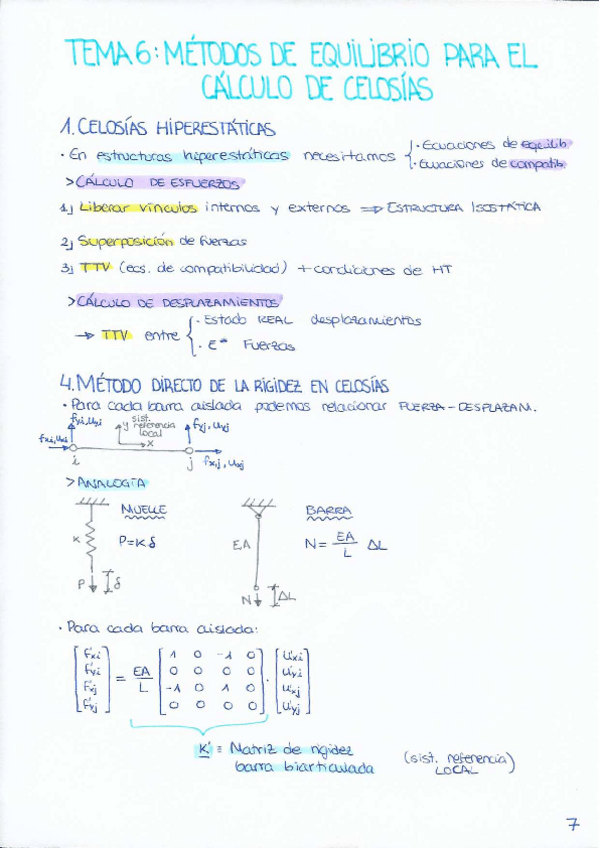 TEMA 6: MÉTODOS DE EQUILIBRIO PARA EL
CÁLCULO DE CELOSÍAS
1. CELOSÍAS HIPERESTÁTICAS
· En estructuras hiperestáticas necesitamos { · Ecuaciones de equilib
· Ecuaciones de compatib
> CÁLCULO DE ESFUERZOS
1) Liberar vínculos internos y externos ⇒ ESTRUCTURA ISOSTÁTICA
2) Superposición de fuerzas
3) TTV (ecs. de compatibilidad) + condiciones de HT
> CÁLCULO DE DESPLAZAMIENTOS
→ TTV entre { · Estado REAL desplazamientos
· Eº Fuerzas
4. MÉTODO DIRECTO DE LA RIGIDEZ EN CELOSÍAS
· Para cada barra aislada podemos relacionar FUERZA-DESPLAZAM.
fyi, uyi
sist.
y referencia
local
x
fyj, uyj
fxi, uxi
i
j
fxj, uxj
> ANALOGÍA
MUELLE
BARRA
K
P=Kδ
EA
N= EA/L ΔL
P
δ
N
ΔL
· Para cada barra aislada:
F'xi 1 0 -1 0 u'xi
F'yi 0 0 0 0 u'yi
= EA/L ·
F'xj -1 0 1 0 u'xj
F'yj 0 0 0 0 u'yj
K' ≡ Matriz de rigidez
barra biarticulada
(sist. referencia
LOCAL)
7